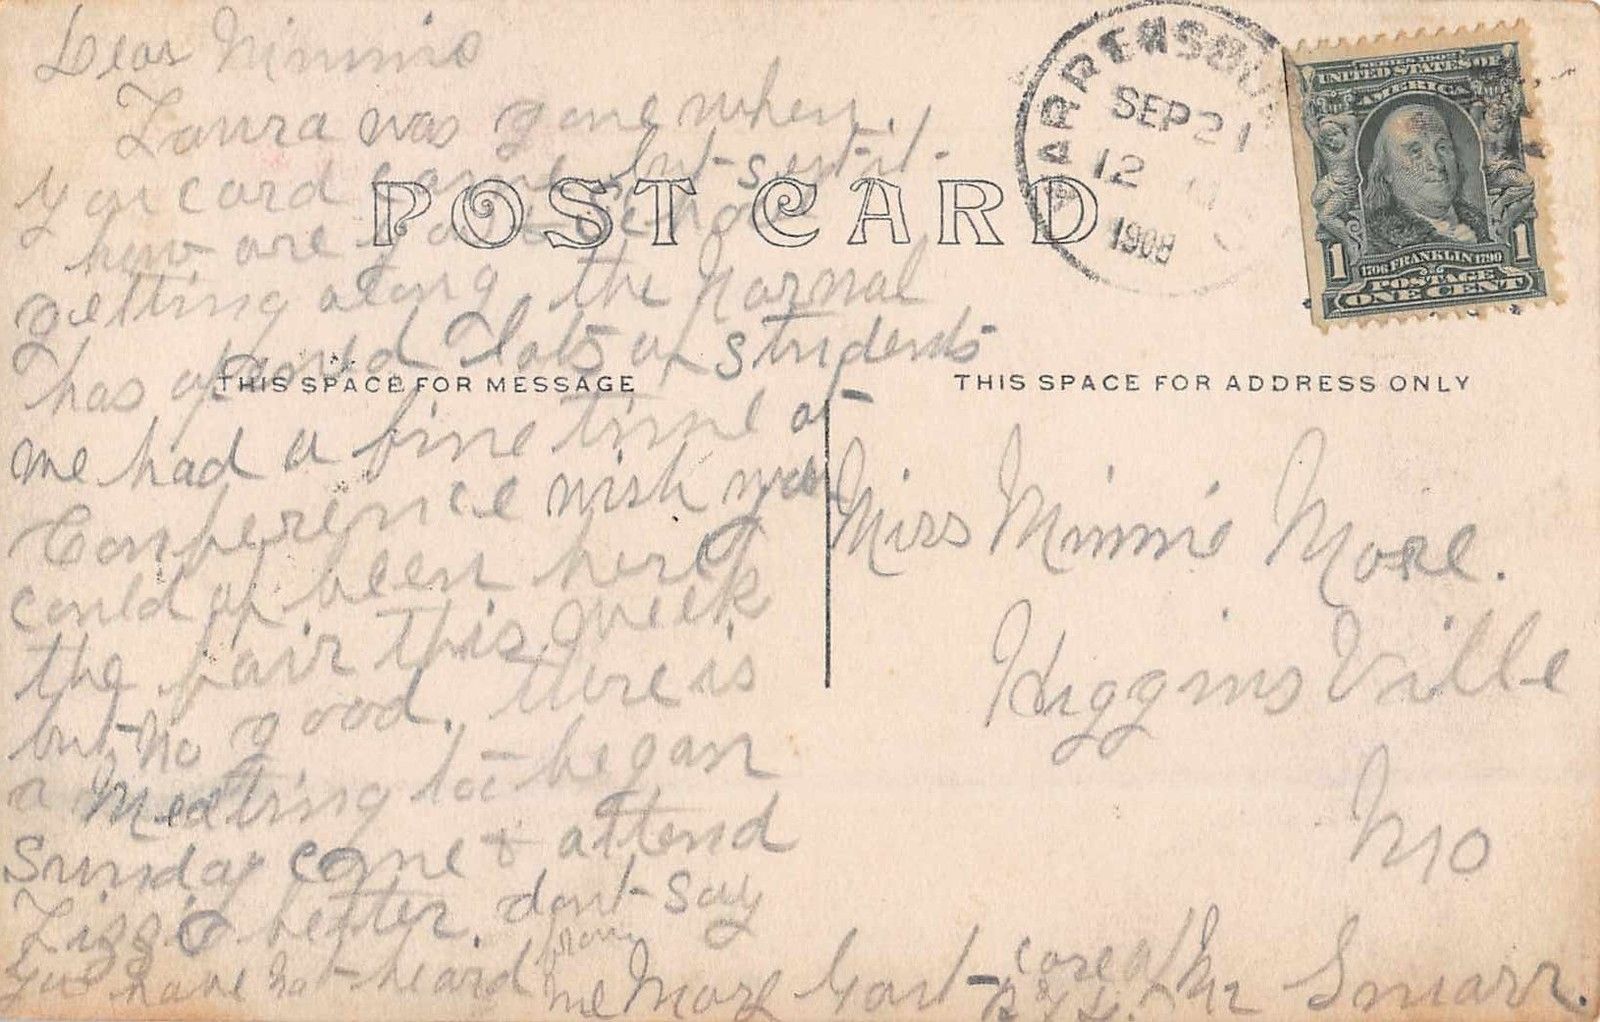 Dear Minnie
Laura was gone when
your card came but sent it.
how are you
getting along the Normal
has opened Lots of students
we had a fine time at
Conference wish you
could of been here
the fair this week
but no good. there is
a Meeting to began
Sunday come & attend
Lizzie better. dont say
you have not heard from
me More
care of Mr Smarr.
POST CARD
THIS SPACE FOR MESSAGE
THIS SPACE FOR ADDRESS ONLY
WARRENSBU
SEP 21
12
1908
SERIES 1902
UNITED STATES OF
AMERICA
1706 FRANKLIN 1790
1 POSTAGE 1
ONE CENT
Miss Minnie More.
HigginsVille
Mo